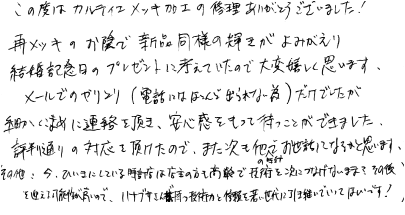 この度はカルティエ メッキ加工の修理ありがとうございました!
再メッキのお陰で新品同様の輝きがよみがえり
結婚記念日のプレゼントに考えていたので大変嬉しく思います、
メールでのやりとり(電話にはほとんど出られない為)だけでしたが
細かくまめに連絡を頂き、安心感をもって待つことができました、
評判通りの対応を頂けたので、また次も他でお世話になるかと思います、
その他: 今、ひいきにしている時計店は 高齢で の技術を次につなげないままその後
を迎える可能性が高いので、 技術力と信頼を若い世代に引き継いでいってほしいです!